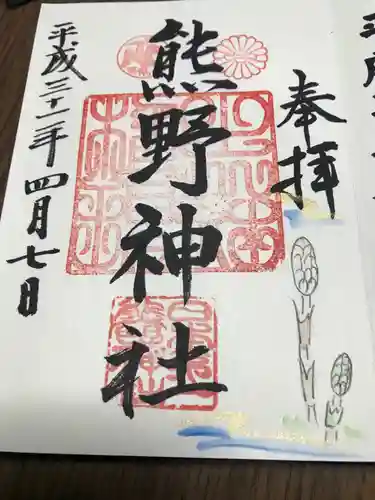 奉拝
熊野神社
平成三十一年四月七日